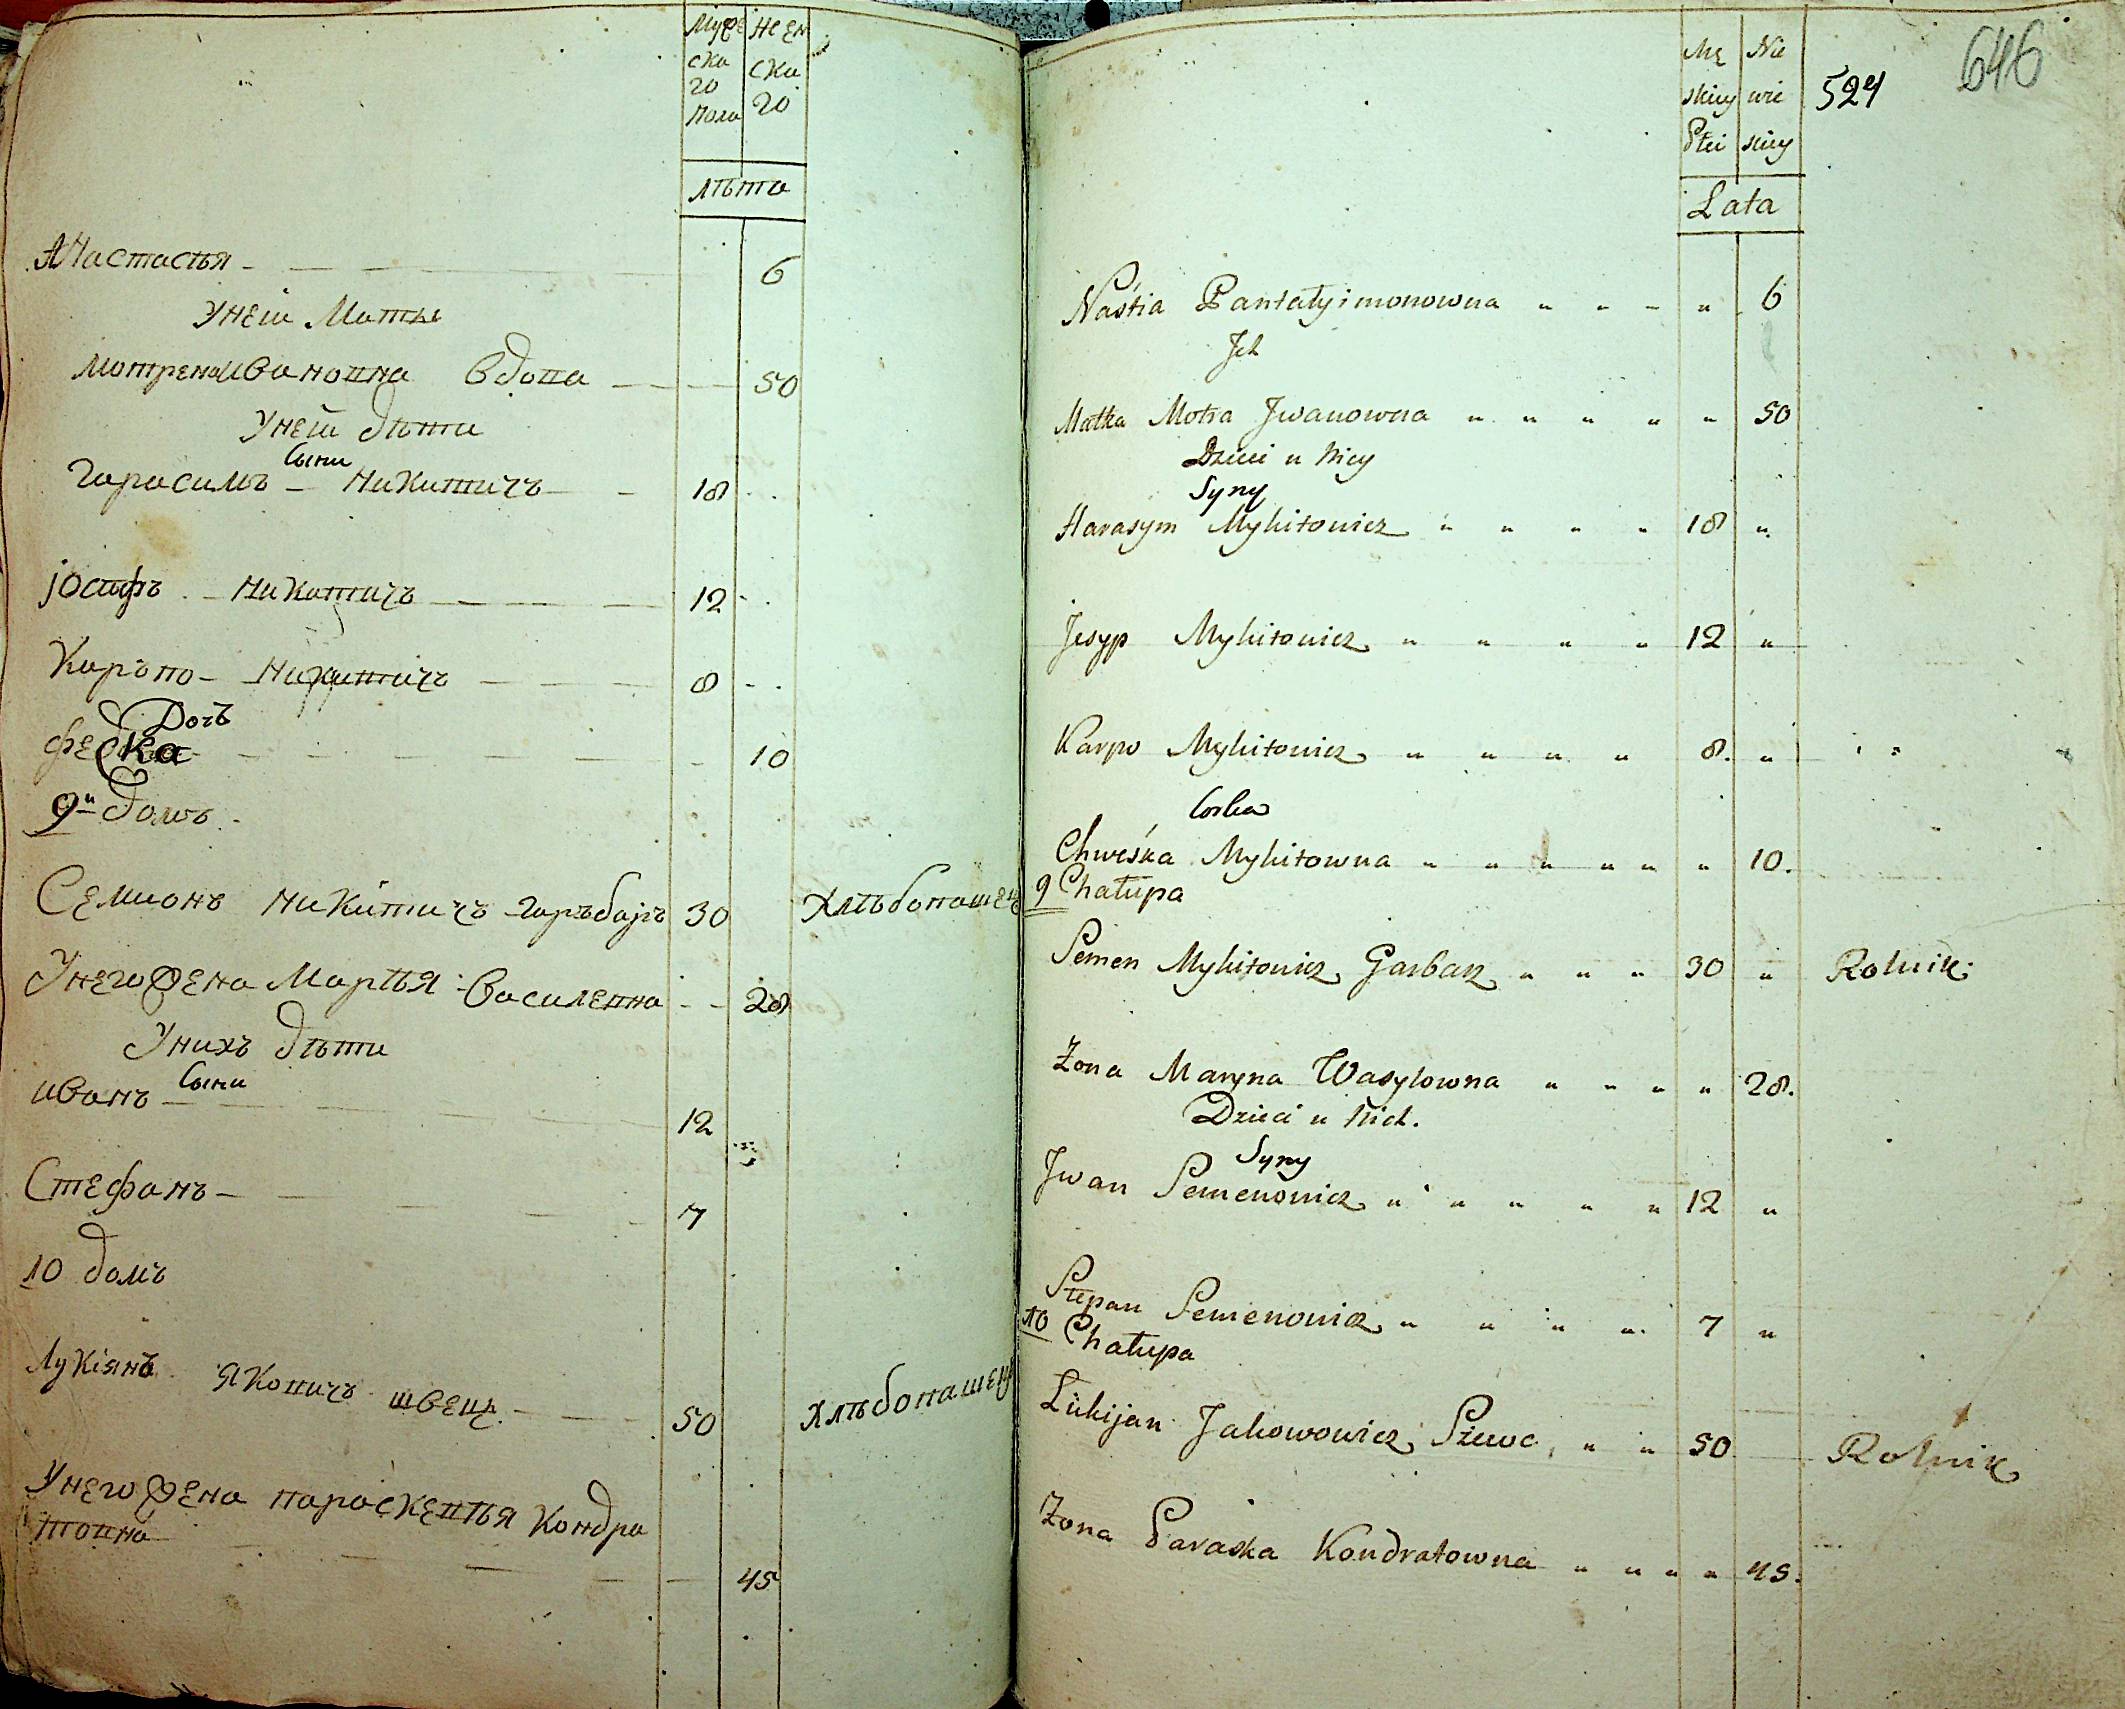 Муже Женс
ска ска
го го
Пола
лѣта
Анастасья 6
Унеи Мать
Мотрена Ивановна вдова 50
Унеи дѣти
Сыни
Гарасимъ Никитичъ 18
Іосифъ Никитичъ 12
Каръпо Никитичъ 8
Дочъ
Феска 10
9й домъ
Семионъ Никитичъ Гаръбаръ 30 Хлѣбопашец
Унего жена Марѣя Василевна 28
Унихъ дѣти
Сыни
Иванъ 12
Стефанъ 7
10 домъ
Лукіянъ Яковичъ швецъ 50 Хлѣбопашец
Унего жена Параскевѣя Кондра
товна 45
646
Mę Nie
skiey wie 524
Płci skiey
Lata
Naśtia Pantałyimonowna " " " " 6
Jch
Matka Motra Jwanowna " " " " " 50
Dzieci u Niey
Syny
Harasym Mykitowicz " " " " 18 "
Jesyp Mykitowicz " " " " 12 "
Karpo Mykitowicz " " " " 8. "
Corka
Chweśka Mykitowna " " " " " " 10.
9 Chałupa
Semen Mykitowicz Garbarz " " " 30 " Rolnik.
Żona Maryna Wasylowna " " " " 28.
Dzieci u Nich.
Syny
Jwan Semenowicz " " " " " 12 "
Stepan Semenowicz " " " " 7 "
10 Chałupa
Łukijan Jakowowicz Szewc, " " 50 Rolnik
Żona Paraska Kondratowna " " " " 45.